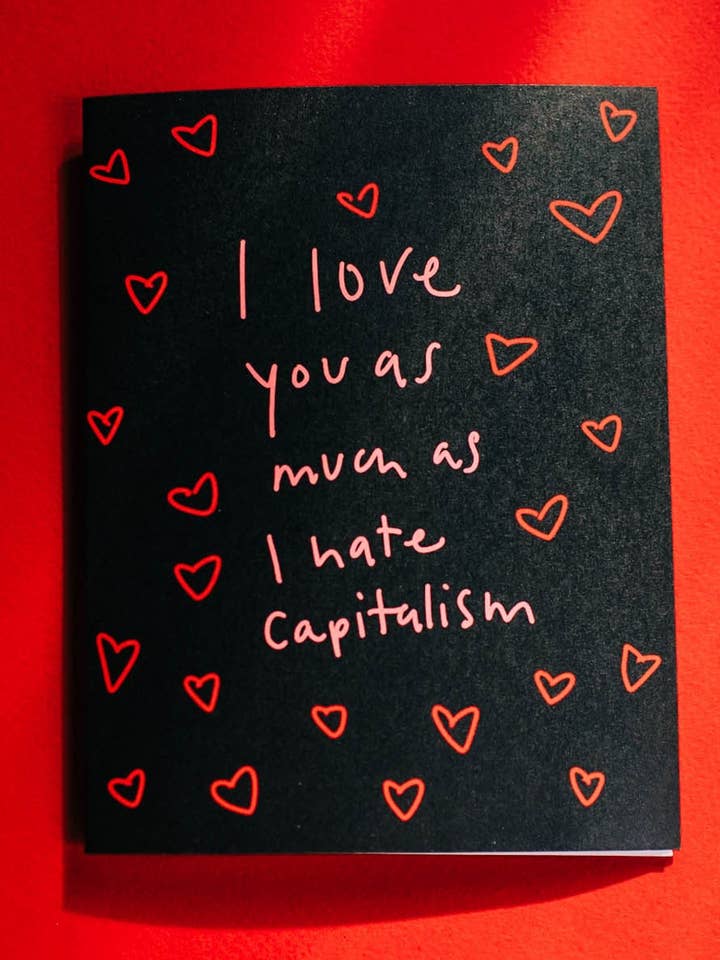 I love
you as
much as
I hate
capitalism